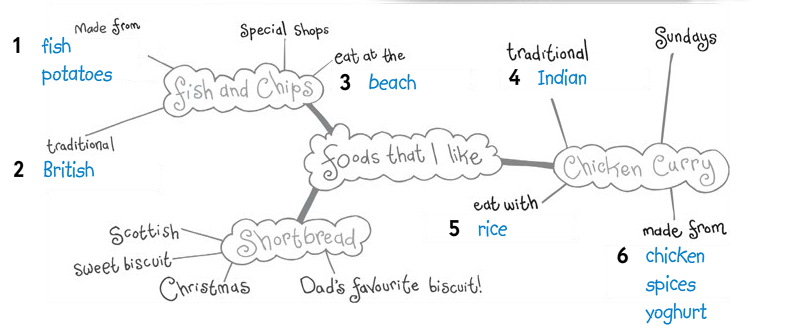 Made from
1 fish
potatoes
Special Shops
eat at the
3 beach
fish and Chips
traditional
2 British
foods that I like
traditional
4 Indian
Sundays
Chicken Curry
eat with
5 rice
made from
6 chicken
spices
yoghurt
Shortbread
Scottish
sweet biscuit
Christmas
Dad's favourite biscuit!